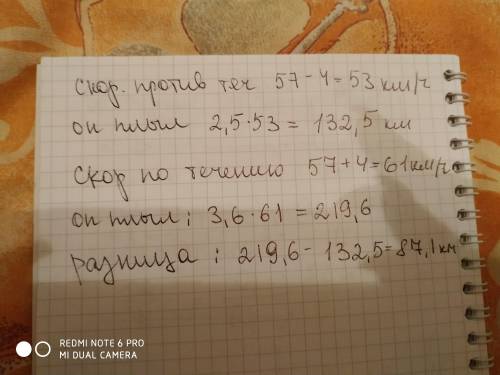 Скор. против теч 57-4=53 км/ч
он плыл 2,5·53 = 132,5 км
Скор по течению 57+4=61км/ч
он плыл; 3,6·61 = 219,6
разница: 219,6 - 132,5=87,1 км
REDMI NOTE 6 PRO
MI DUAL CAMERA